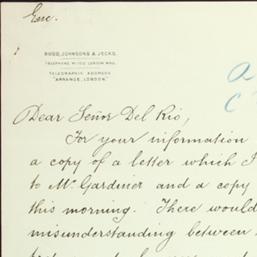 Enc.
RUGG, JOHNSONS & JECKS.
TELEGRAPHIC ADDRESS
"ARRANGE, LONDON."
Dear Señor Del Rio,
For your information
a copy of a letter which I
to Mr. Gardiner and a copy
this morning. There would
misunderstanding between